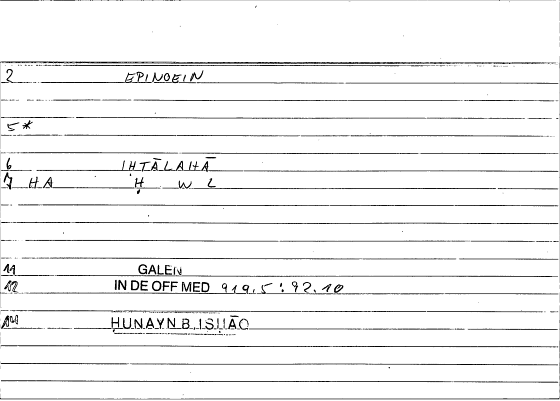 2 EPINOEIN
5*
6 IHTĀLAHĀ
7 HA Ḥ W L
11 GALEN
12 IN DE OFF MED 919.5 : 92.10
14 ḤUNAYN B. ISḤĀQ